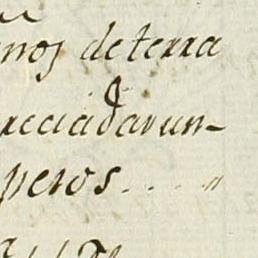 nos de terra
reciadavun-
pesos.... "